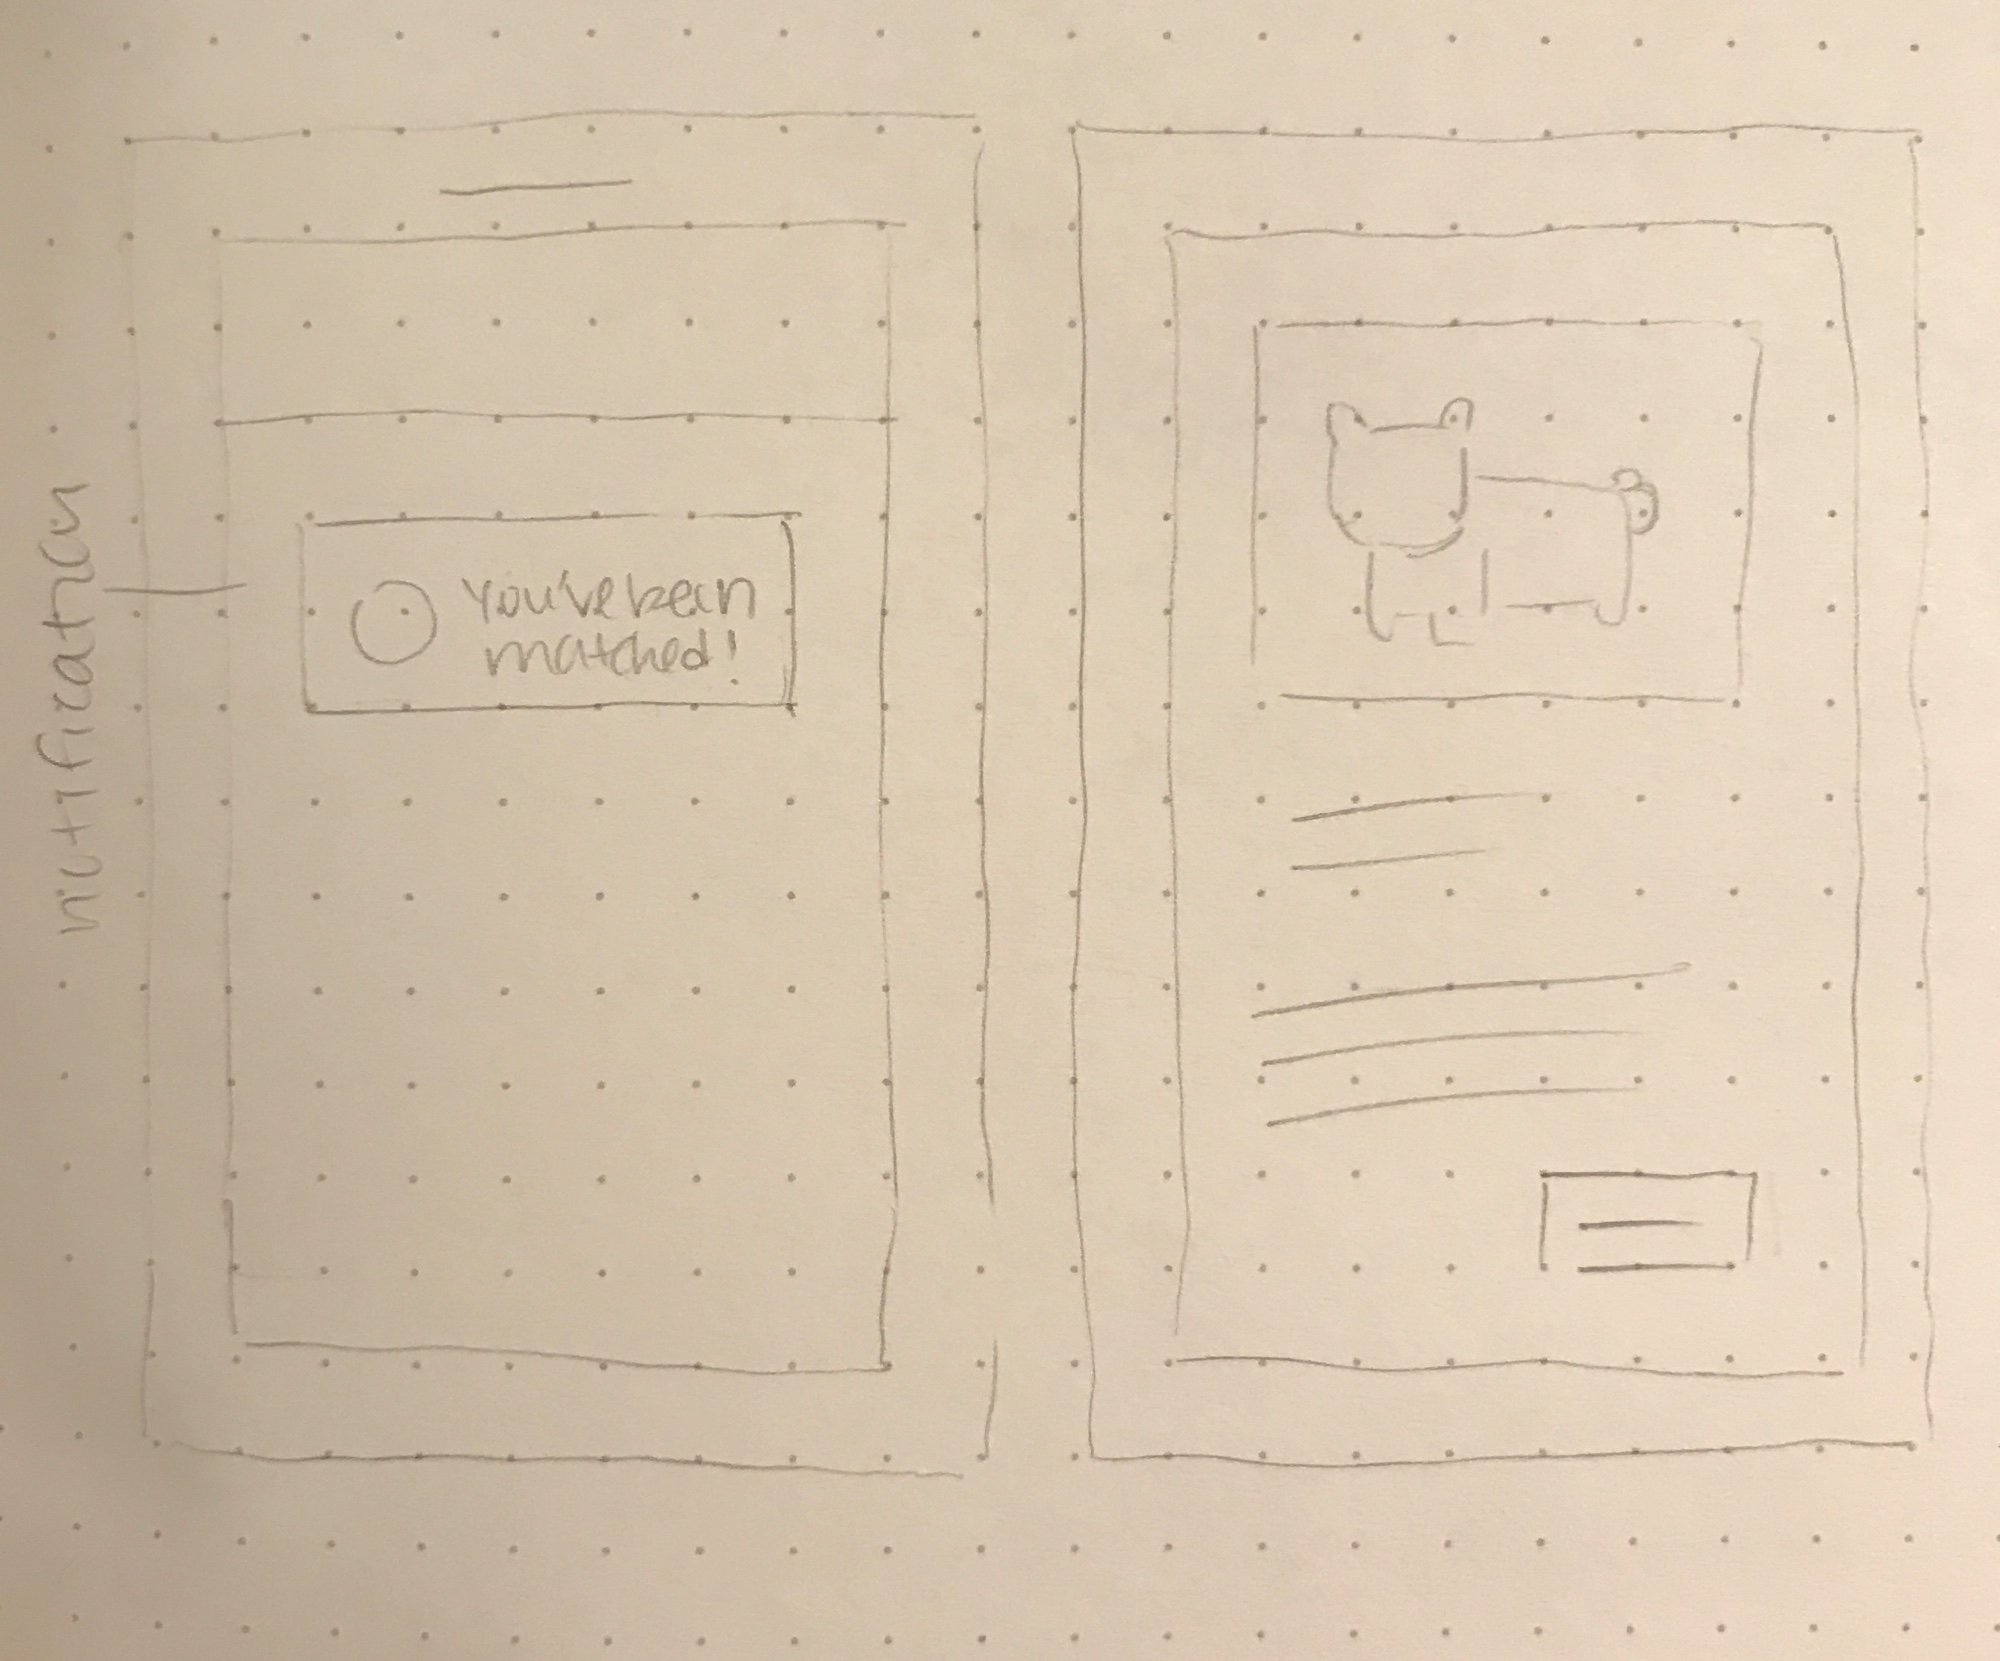 notification
You've been
matched!